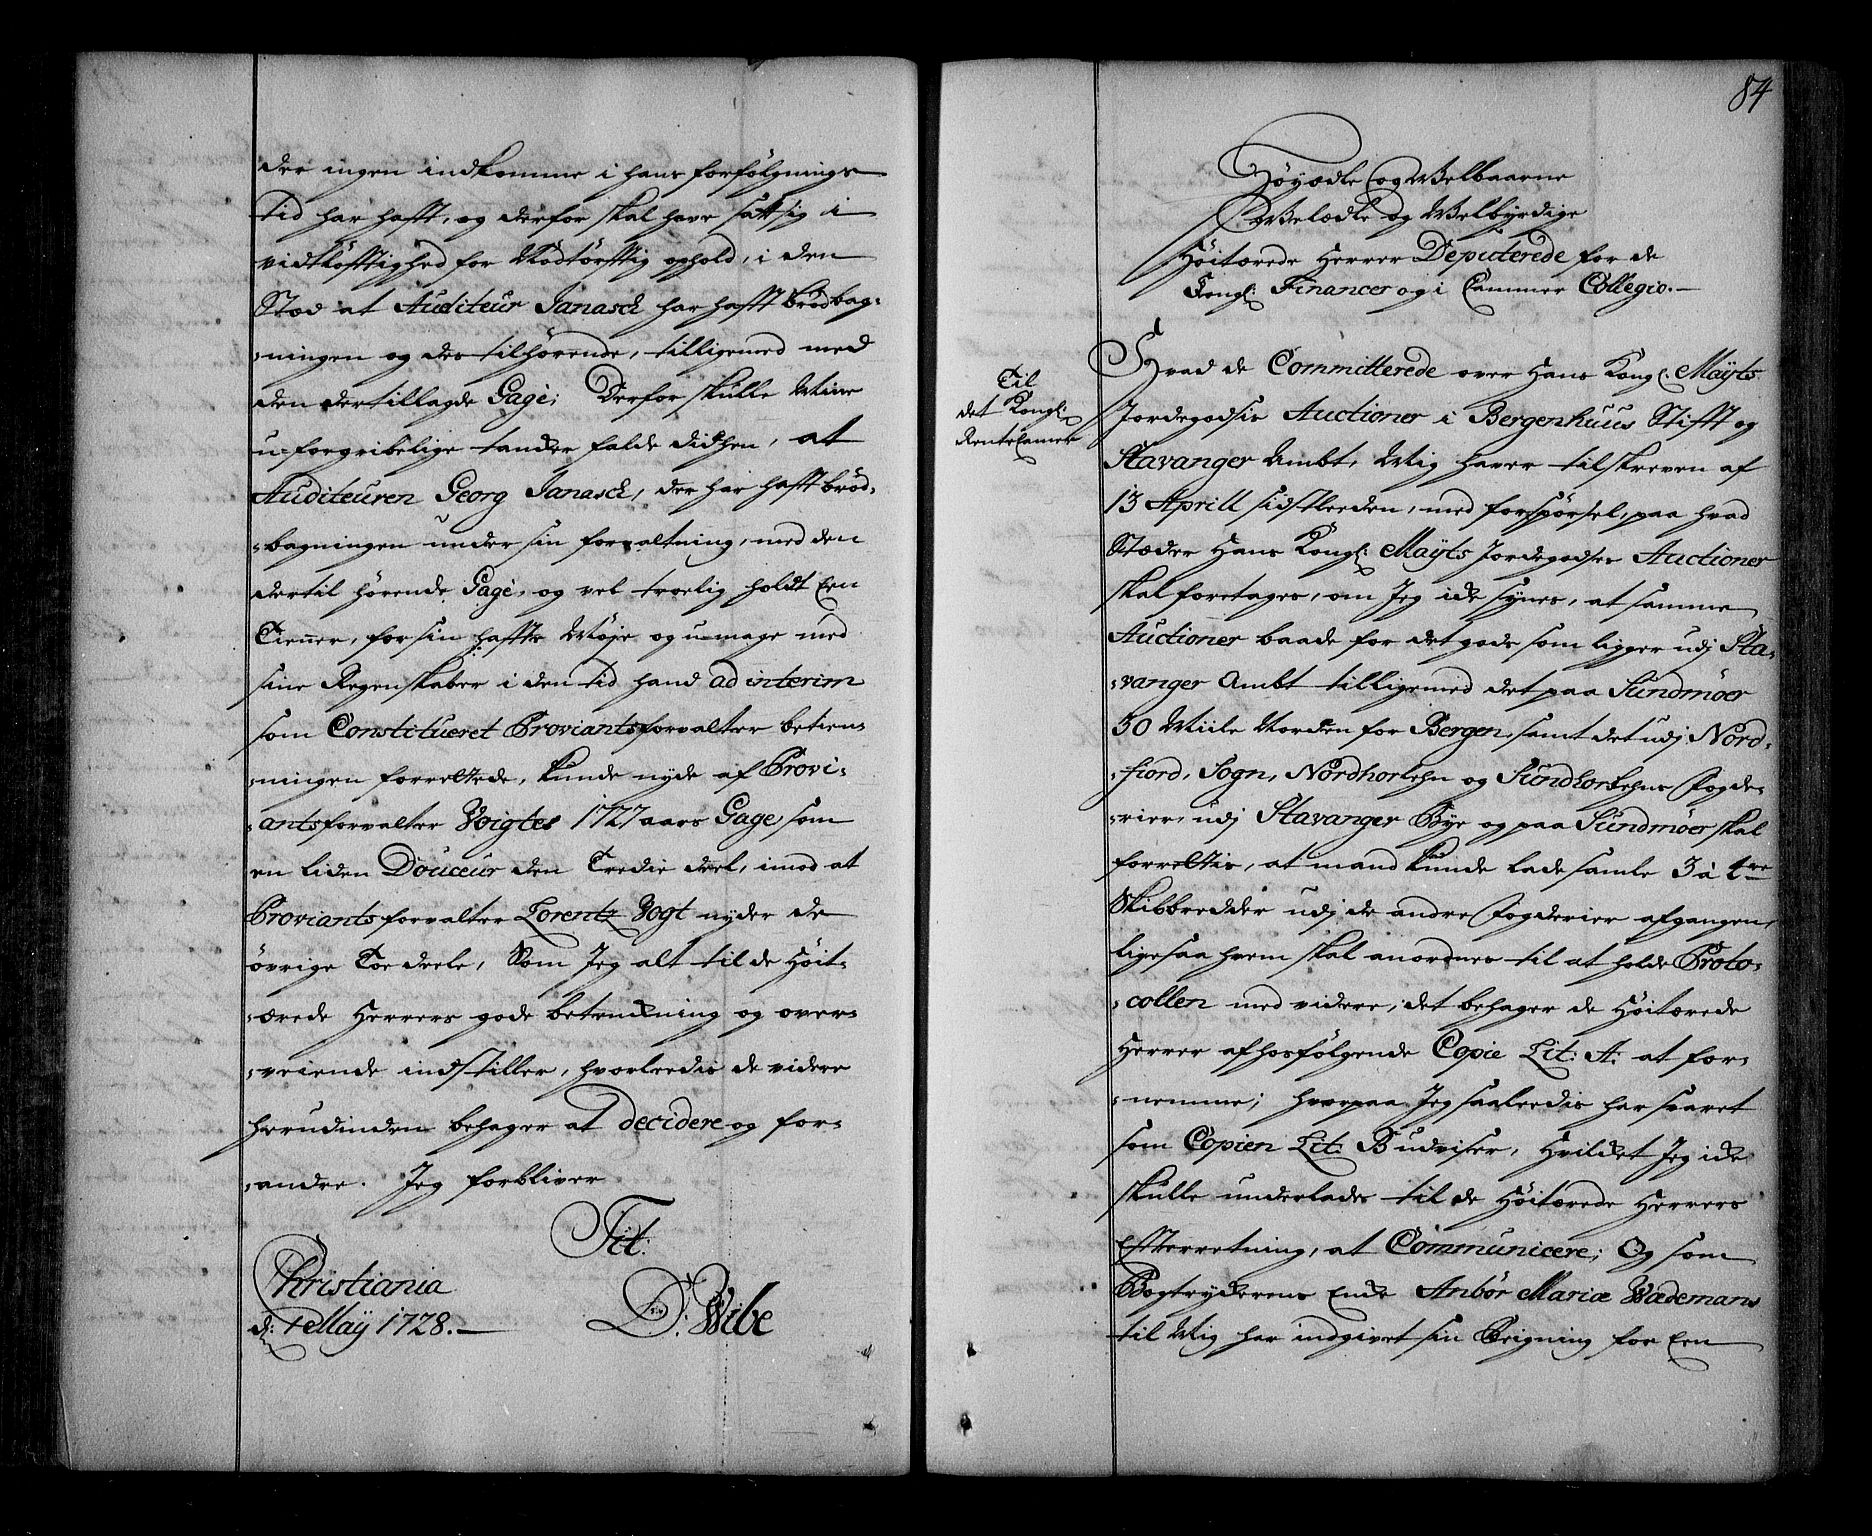 der ingen indkomme i hans forfølgnings
tid har hafft, og derfor skal have satt sig i
vidtløfftighed for Nødtørfftig ophold, i den
Stæd at Auditeur Janasch har hafft brødbag-
-ningen og des tilhørende, tilligemed med
den dertillagde Gage; Derfor skulle Mine
u-forgribelige tancker falde didhen, at
Auditeuren Georg Janasch, der har hafft brød-
-bagningen under sin forvaltning, med den
dertil hørende Gage, og vel troelig holdt Een
Tiener, for sin haffte Møje og u-mage med
sine Regenskaber i den tid hand ad interim
som Constitueret Proviantsforvalter betien-
-ningen forrettede, kunde nyde af Provi-
-antsforvalter Voigtes 1727 aars Gage som
en liden Douceur den Tredie deel, imod at
Proviantsforvalter Lorentz Vogt nyder de
øvrige Toe deele, Som Jeg alt til de Høit-
-ærede Herrers gode betenckning og over-
-veiende indstiller, hvorleedis de videre
herudinden behager at decidere og for-
-andre. Jeg forbliver
Tit:
Christiania
d: 1 Maÿ 1728.
D: Wibe
84
Høyædle og Welbaarne
Welædle og Welbyrdige
Høitærede Herrer Deputerede for de
Kongl: Financer og i Cammer Collegio.
Til
det Kongl:
Rente Camer
Hvad de Committerede over Hans Kongl: Maÿts
Jordegodsis Auctioner i Bergenhuus Stifft og
Stavanger Ambt, Mig haver tilskreven af
13 Aprill sidstleeden, med forspørsel, paa hvad
Stæder Hans Kongl: Maÿts Jordegodses Auctioner
skal foretages, om Jeg icke synes, at samme
Auctioner baade for det gods som ligger udj Sta-
-vanger Ambt tilligemed det paa Sundmøer
30 Miile Norden for Bergen, samt det udj Nord-
-fiord, Sogn, Nordhorlehn og Sundhorlehns Fogde-
-rier, udj Stavanger Bye og paa Sundmøer skal
forrettis, at mand kunde lade samle 3 à 4re
Skibbredder udj de andre Fogderier afgangen,
ligesaa hvem skal anordnes til at holde Proto-
-collen med videre, det behager de Høitærede
Herrer af hosfølgende Copie Lit: A: at for-
-nemme; hvorpaa Jeg saaleedis har svaret
som Copien Lit: B udviser, Hvilcket Jeg icke
skulle underlades til de Høitærede Herrers
Efterretning, at Communicere; Og som
Bogtrykerens Encke Anbór Mariæ Wædemans
til Mig har indgivet sin Reigning for Een